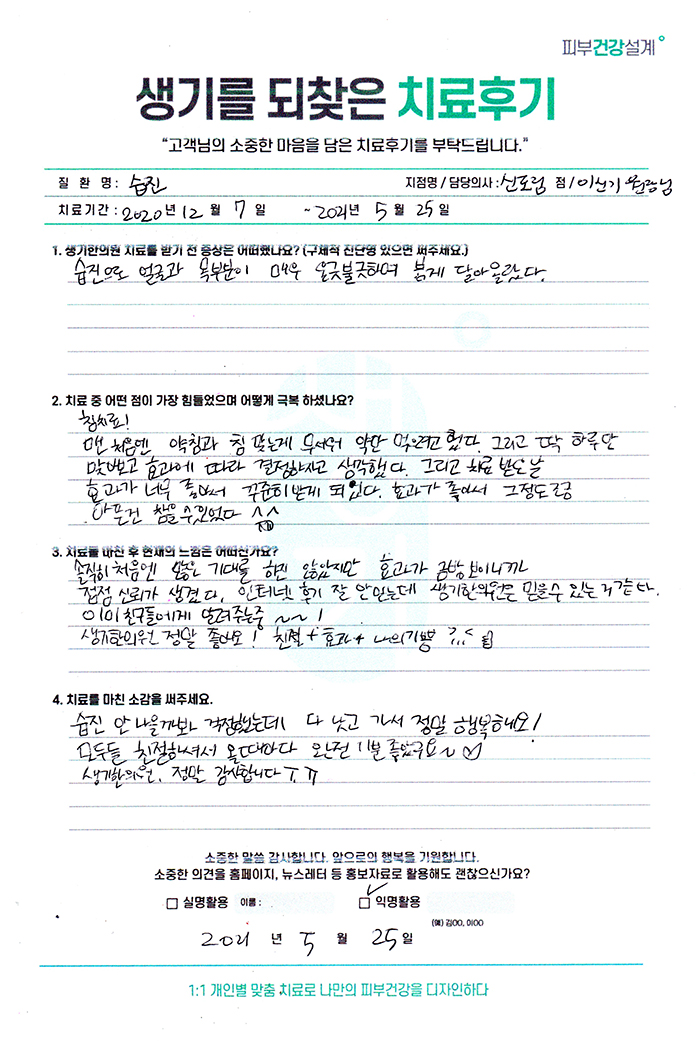 피부건강설계
생기를 되찾은 치료후기
"고객님의 소중한 마음을 담은 치료후기를 부탁드립니다."
질 환 명 : 습진 지점명 / 담당의사 : 신도림 점 / 이신기 원장님
치료기간 : 2020 년 12 월 7 일 ~ 2021 년 5 월 25 일
1. 생기한의원 치료를 받기 전 증상은 어떠했나요? (구체적 진단명 있으면 써주세요.)
습진으로 얼굴과 목부분이 매우 울긋불긋하며 붉게 달아올랐다.
2. 치료 중 어떤 점이 가장 힘들었으며 어떻게 극복 하셨나요?
침치료!
맨 처음엔 약침과 침 맞는게 무서워 약만 먹으려고 했다. 그리고 딱 하루만
맞아보고 효과에 따라 결정하자고 생각했다. 그리고 치료 받은날
효과가 너무 좋아서 꾸준히 받게 되었다. 효과가 좋아서 그정도로
아픈건 참을 수 있었다 ^^
3. 치료를 마친 후 현재의 느낌은 어떠신가요?
솔직히 처음엔 많은 기대를 하진 않았지만 효과가 금방 보이니까
점점 신뢰가 생겼다. 인터넷 후기 잘 안믿는데 생기한의원은 믿을수 있는거같다.
이미 친구들에게 알려주는중 ~~!
생기한의원 정말 좋아요! 친절+효과+나의기쁨
4. 치료를 마친 소감을 써주세요.
습진 안 나을까봐 걱정했는데 다 낫고 가서 정말 행복해요!
모두들 친절하셔서 올때마다 완전 기분 좋았구요~ ♡
생기한의원, 정말 감사합니다 ㅠㅠ
소중한 말씀 감사합니다. 앞으로의 행복을 기원합니다.
소중한 의견을 홈페이지, 뉴스레터 등 홍보자료로 활용해도 괜찮으신가요?
□ 실명활용 이름 : ☑ 익명활용
(예) 김OO, 이OO
2021 년 5 월 25 일
1:1 개인별 맞춤 치료로 나만의 피부건강을 디자인하다